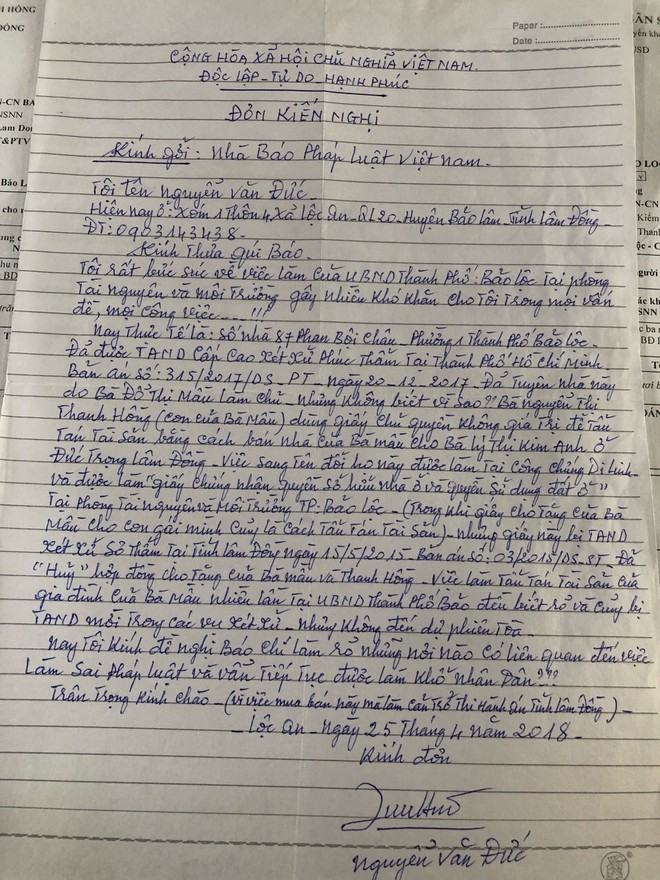 Paper :
Date :
CỘNG HÒA XÃ HỘI CHỦ NGHĨA VIỆT NAM.
ĐỘC LẬP - TỰ DO - HẠNH PHÚC
ĐƠN KIẾN NGHỊ
Kính gởi : Nhà Báo Pháp Luật Việt Nam.
Tôi tên Nguyễn Văn Đức
Hiện nay ở: Xóm 1 Thôn 4 Xã Lộc An - QL20 - Huyện Bảo Lâm - Tỉnh Lâm Đồng -
ĐT: 0903143438 -
Kính Thưa Quí Báo.
Tôi rất bức sức về việc làm của UBND Thành Phố: Bảo Lộc Tại phòng
Tài nguyên và môi Trường gây nhiều khó khăn cho Tôi Trong mọi vấn
đề, mọi công việc ..... !!!
Nay Thực Tế là: Số nhà 87 Phan Bội Châu - Phường 1 Thành Phố Bảo Lộc -
Đã được TAND Cấp Cao Xét Xử Phúc Thẩm Tại Thành Phố Hồ Chí Minh
Bản án số: 315/2017/DS-PT - ngày 20-12-2017 - Đã Tuyên nhà này
do Bà Đỗ Thị Mầu Làm Chủ - Nhưng không biết vì sao? Bà Nguyễn Thị
Thanh Hồng (con của Bà Mầu) dùng giấy chủ quyền không giá Trị để Tẩu
Tán Tài Sản bằng cách bán nhà của Bà mầu cho Bà Lý Thị Kim Anh ở
Đức Trọng Lâm Đồng - Việc sang Tên đổi họ này được làm Tại Công Chứng Di Linh -
và được làm "giấy chứng nhận quyền sở hữu nhà ở và quyền sử dụng đất ở"
Tại phòng Tài nguyên và Môi Trường TP: Bảo Lộc - (Trong khi giấy cho Tặng của Bà
Mầu cho con gái mình cũng là cách Tẩu Tán Tài Sản) - Nhưng giấy này bị TAND
Xét Xử Sơ Thẩm Tại Tỉnh Lâm Đồng ngày 15/5/2015 - Bản án số: 03/2015/DS-ST - Đã
"Huỷ" hợp đồng cho Tặng của Bà mầu và Thanh Hồng - Việc làm Tẩu Tán Tài Sản của
gia đình của Bà Mầu nhiều lần Tại UBND Thành Phố Bảo đều biết rõ và cũng bị
TAND mời Trong các vụ Xét Xử - Nhưng không đến dự phiên Tòa -
Nay Tôi Kính đề nghị Báo Chí làm rõ những nơi nào có liên quan đến việc
Làm Sai Pháp luật và vẫn Tiếp Tục được làm Khổ Nhân Dân ???
Trân Trọng Kính Chào - (vì việc mua bán này mà làm cản Trở Thi Hành Án Tỉnh Lâm Đồng) -
- Lộc An - Ngày 25 Tháng 4 năm 2018 -
Kính đơn
Nguyễn Văn Đức